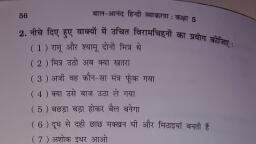 56 बाल-आनंद हिन्दी व्याकरण : कक्षा 5
2. नीचे दिए हुए वाक्यों में उचित विरामचिह्नों का प्रयोग कीजिए :
( 1 ) रामू और श्यामू दोनों मित्र थे
( 2 ) मित्र उठो अब क्या खतरा
( 3 ) अजी वह कौन-सा मंत्र फूँक गया
( 4 ) क्या उसे बाज उठा ले गया
( 5 ) बछड़ा बड़ा होकर बैल बनेगा
( 6 ) दूध से दही छाछ मक्खन घी और मिठाइयाँ बनती हैं
( 7 ) अशोक इधर आओ